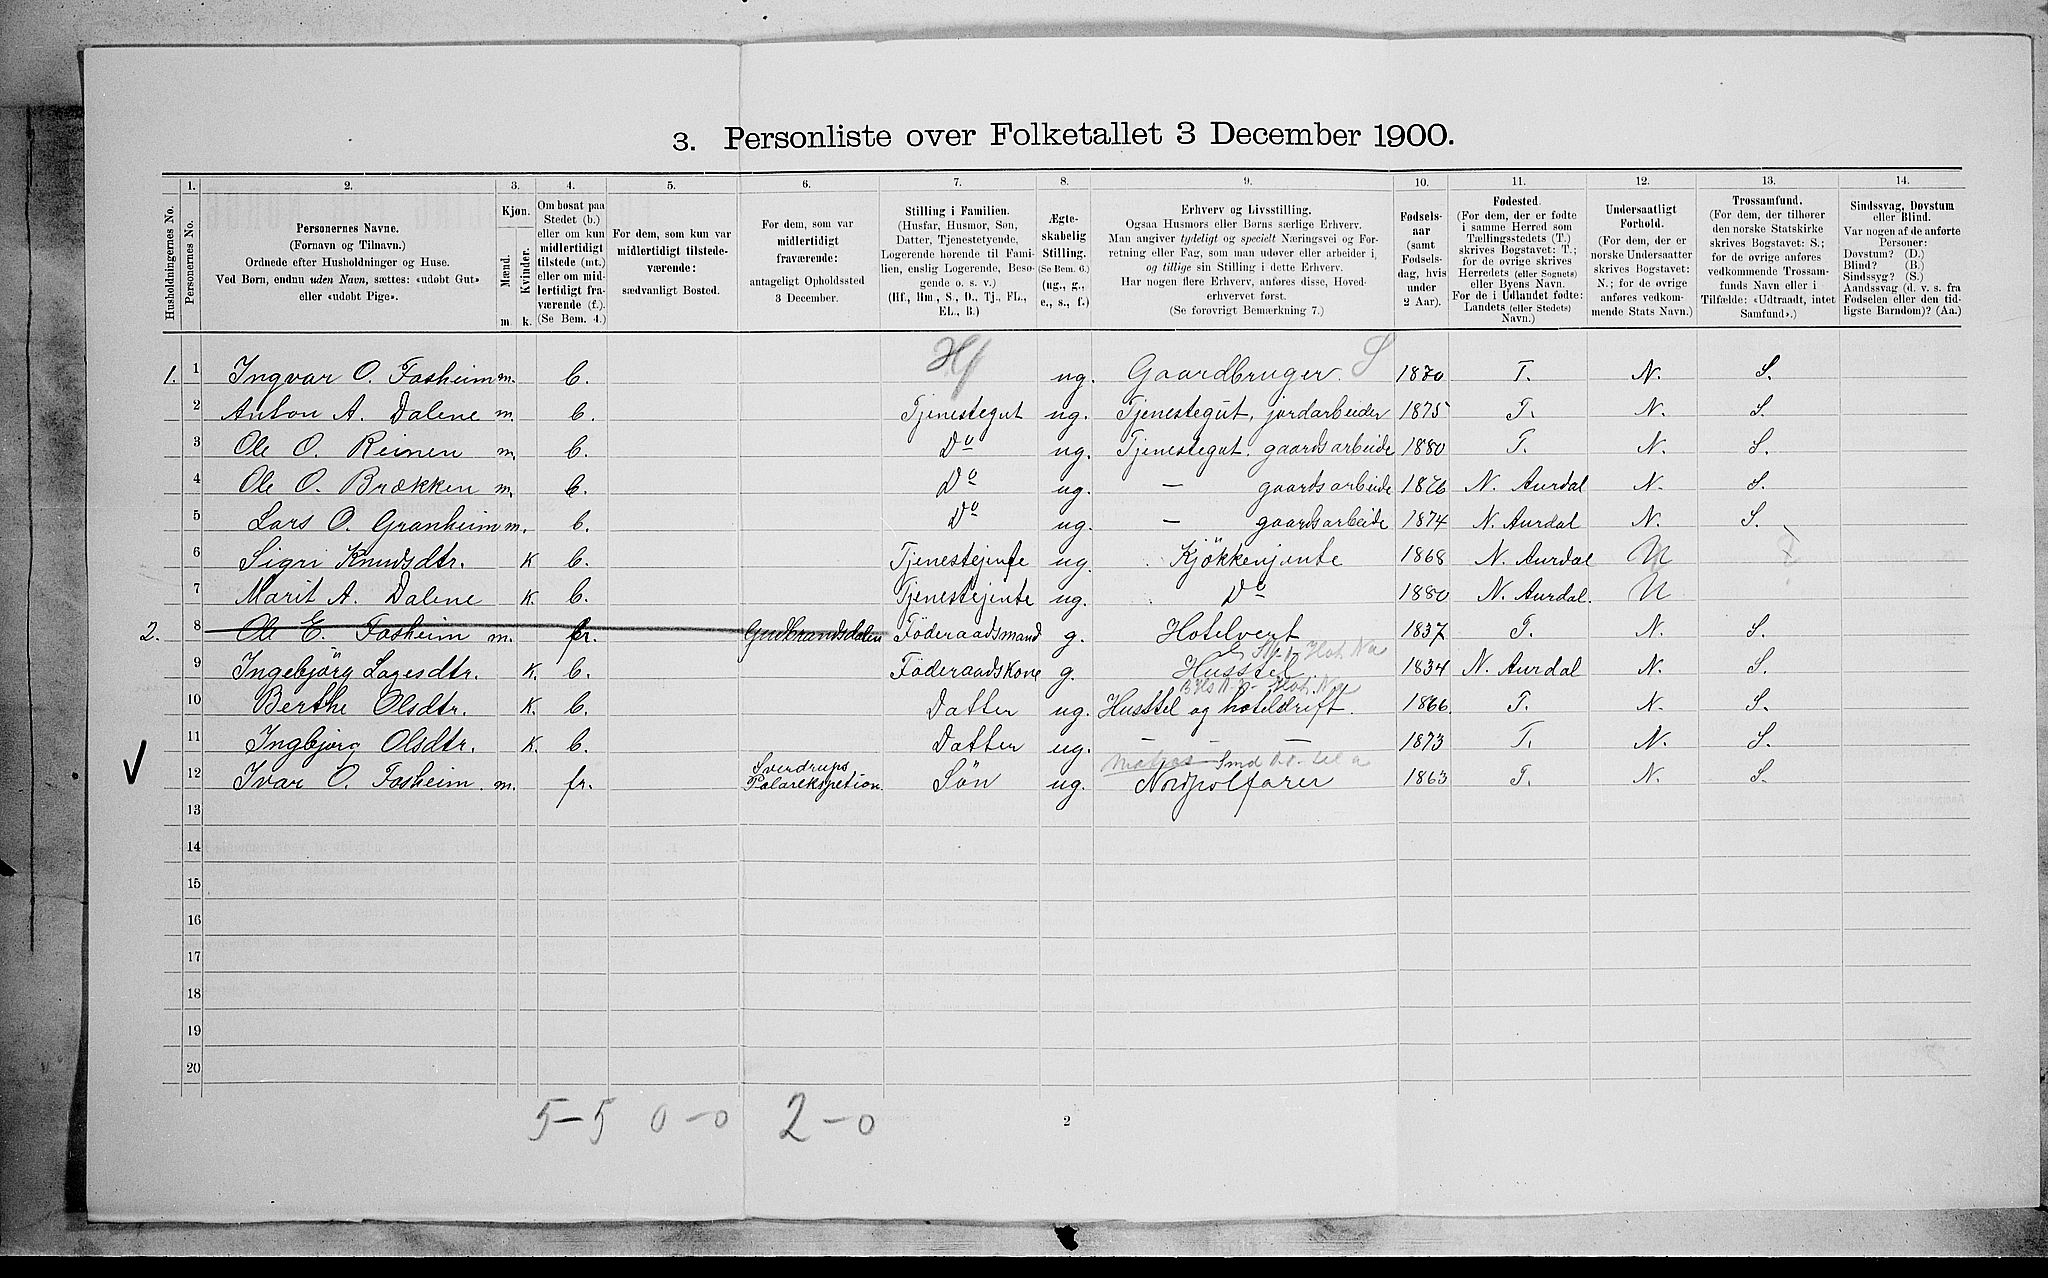 3. Personliste over Folketallet 3 December 1900.
Husholdningernes No.
1.
Personernes No.
2.
Personernes Navne.
(Fornavn og Tilnavn.)
Ordnede efter Husholdninger og Huse.
Ved Børn, endnu uden Navn, sættes: «udøbt Gut»
eller «udøbt Pige».
3.
Kjøn.
Mænd.
Kvinder.
m. k.
4.
Om bosat paa
Stedet (b.)
eller om kun
midlertidigt
tilstede (mt.)
eller om mid-
lertidigt fra-
værende (f.).
(Se Bem. 4.)
5.
For dem, som kun var
midlertidigt tilstede-
værende:
sædvanligt Bosted.
6.
For dem, som var
midlertidigt
fraværende:
antageligt Opholdssted
3 December.
7.
Stilling i Familien.
(Husfar, Husmor, Søn,
Datter, Tjenestetyende,
Logerende hørende til Fami-
lien, enslig Logerende, Besø-
gende o. s. v.)
(Hf., Hm., S., D., Tj., FL.,
EL., B.)
8.
Ægte-
skabelig
Stilling.
(Se Bem. 6.)
(ug., g.,
e., s., f.)
9.
Erhverv og Livsstilling.
Ogsaa Husmors eller Børns særlige Erhverv.
Man angiver tydeligt og specielt Næringsvei og For-
retning eller Fag, som man udøver eller arbeider i,
og tillige sin Stilling i dette Erhverv.
Har nogen flere Erhverv, anføres disse, Hoved-
erhvervet først.
(Se forøvrigt Bemærkning 7.)
10.
Fødsels-
aar
(samt
Fødsels-
dag, hvis
under
2 Aar).
11.
Fødested.
(For dem, der er fødte
i samme Herred som
Tællingsstedets (T.)
skrives Bogstavet: T.;
for de øvrige skrives
Herredets (eller Sognets)
eller Byens Navn.
For de i Udlandet fødte:
Landets (eller Stedets)
Navn.)
12.
Undersaatligt
Forhold.
(For dem, der er
norske Undersaatter
skrives Bogstavet:
N.; for de øvrige
anføres vedkom-
mende Stats Navn.)
13.
Trossamfund.
(For dem, der tilhører
den norske Statskirke
skrives Bogstavet: S.;
for de øvrige anføres
vedkommende Trossam-
funds Navn eller i
Tilfælde: «Udtraadt, intet
Samfund».)
14.
Sindssvag, Døvstum
eller Blind.
Var nogen af de anførte
Personer:
Døvstum? (D.)
Blind? (B.)
Sindssyg? (S.)
Aandssvag (d. v. s. fra
Fødselen eller den tid-
ligste Barndom)? (Aa.)
1. 1 Ingvar O. Fosheim m. b. Hf ug. Gaardbruger. S 1870 T. N. S.
2 Anton A. Dalene m. b. Tjenestegut ug. Tjenestegut, jordarbeider 1875 T. N. S.
3 Ole O. Reinen m. b. Do ug. Tjenestegut. gaardsarbeide 1880 T. N. S.
4 Ole O. Brækken m. b. Do ug. — gaardsarbeide 1876 N. Aurdal N. S.
5 Lars O. Granheim m. b. Do ug. — gaardsarbeide 1874 N. Aurdal N. S.
6 Sigri Knudsdtr. K b. Tjenestejente ug. Kjökkenjente 1868 N. Aurdal N
7 Marit A. Dalene K. b. Tjenestejente ug. Do 1880 N. Aurdal. N
2. 8 Ole E. Fosheim m. fr. Gudbrandsdalen Föderaadsmand g. Hotelvert 1837 T. N. S.
9 Ingebjörg Lagesdtr. K. b. Föderaadskone g. Husstel 1834 N. Aurdal N. S.
10 Berthe Olsdtr. K. b. Datter ug. Husstel og hoteldrift. 1866. T. N. S.
11 Ingbjörg Olsdtr. K. b. Datter ug. — — — 1873 T. N. S.
12 Ivar O. Fosheim. m. fr. Sverdrups
Polarekspetion. Sön ug. Nordpolfarer 1863 T. N. S.
13
14
15
16
17
18
19
20
5-5 0-0 2-0
2